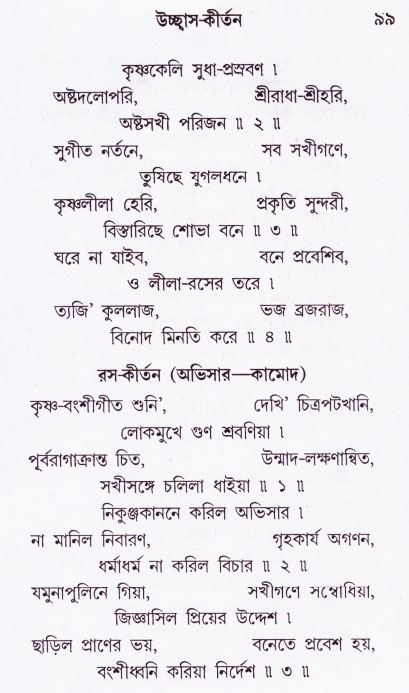 উচ্ছ্বাস-কীর্তন ৯৯
কৃষ্ণকেলি সুধা-প্রস্রবণ ।
অষ্টদলোপরি, শ্রীরাধা-শ্রীহরি,
অষ্টসখী পরিজন ॥ ২ ॥
সুগীত নর্তনে, সব সখীগণে,
তুষিছে যুগলধনে ।
কৃষ্ণলীলা হেরি, প্রকৃতি সুন্দরী,
বিস্তারিছে শোভা বনে ॥ ৩ ॥
ঘরে না যাইব, বনে প্রবেশিব,
ও লীলা-রসের তরে ।
ত্যজি’ কুললাজ, ভজ ব্রজরাজ,
বিনোদ মিনতি করে ॥ ৪ ॥
রস-কীর্তন (অভিসার—কামোদ)
কৃষ্ণ-বংশীগীত শুনি’, দেখি’ চিত্রপটখানি,
লোকমুখে গুণ শ্রবণিয়া ।
পূর্বরাগাক্রান্ত চিত, উন্মাদ-লক্ষণান্বিত,
সখীসঙ্গে চলিলা ধাইয়া ॥ ১ ॥
নিকুঞ্জকাননে করিল অভিসার ।
না মানিল নিবারণ, গৃহকার্য অগণন,
ধর্মাধর্ম না করিল বিচার ॥ ২ ॥
যমুনাপুলিনে গিয়া, সখীগণে সম্বোধিয়া,
জিজ্ঞাসিল প্রিয়ের উদ্দেশ ।
ছাড়িল প্রাণের ভয়, বনেতে প্রবেশ হয়,
বংশীধ্বনি করিয়া নির্দেশ ॥ ৩ ॥